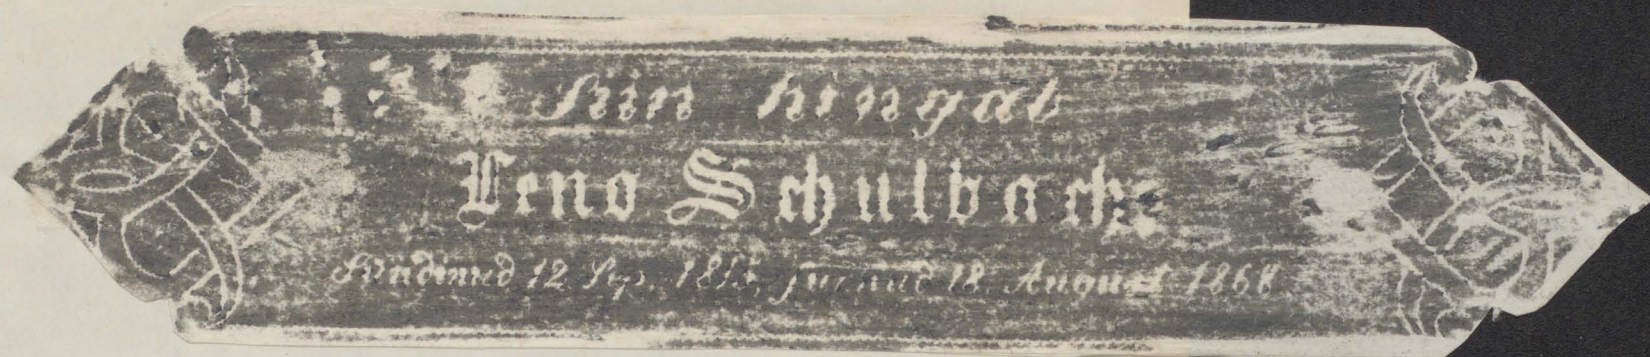 Siin hingab
Leno Schulbach
Sündinud 12 Sep. surnud 18. August 1868